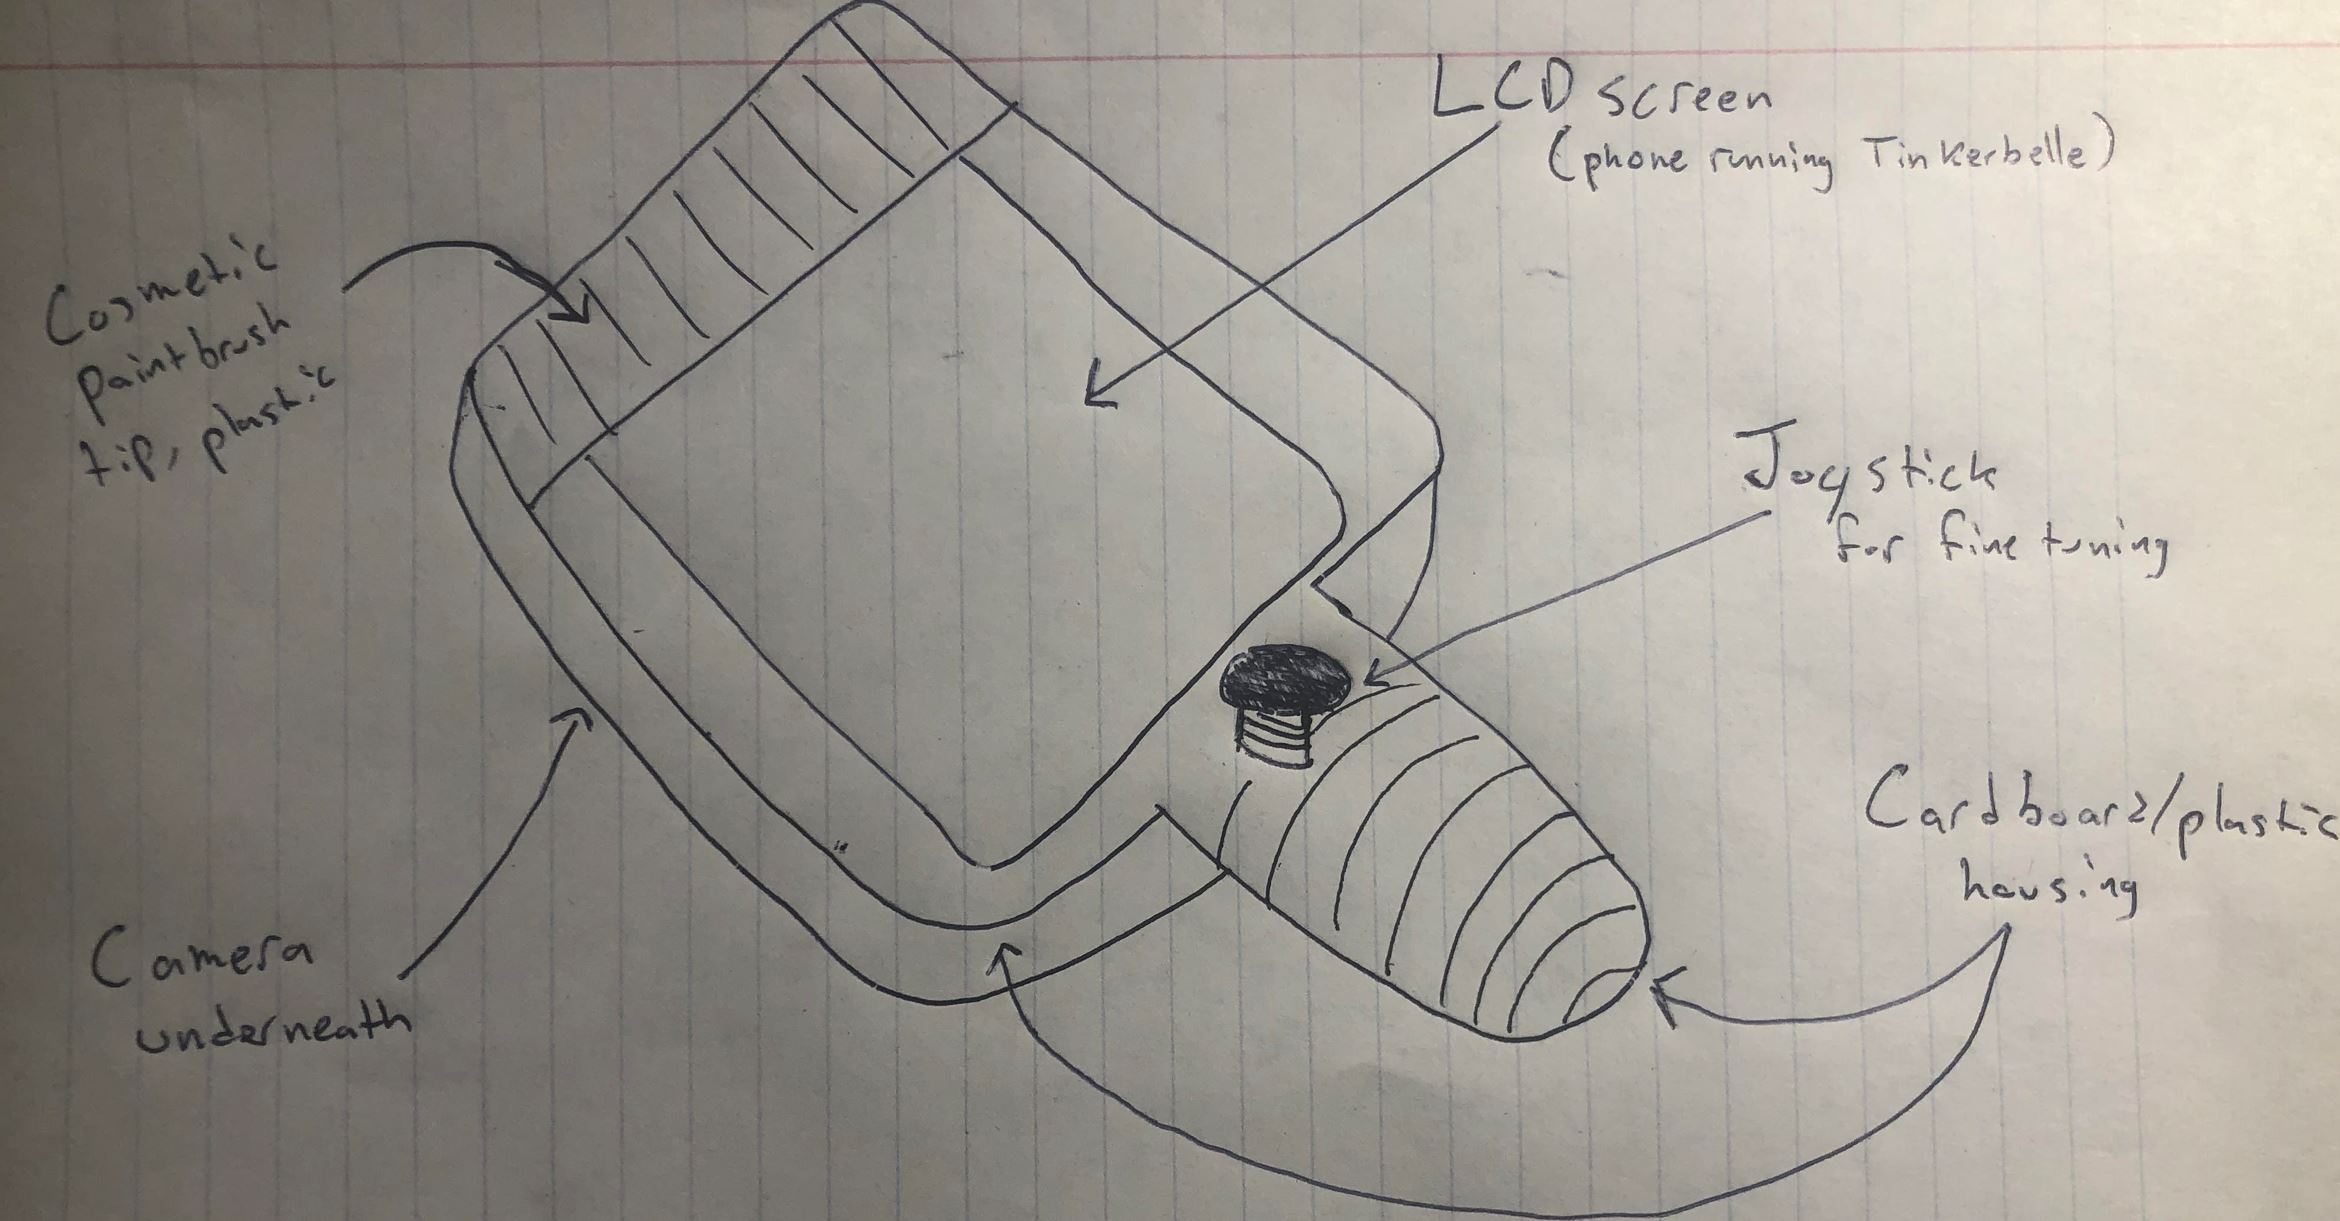 LCD screen
(phone running Tinkerbelle)
Cosmetic
paintbrush
tip, plastic
Joystick
for fine tuning
Cardboard/plastic
housing
Camera
underneath